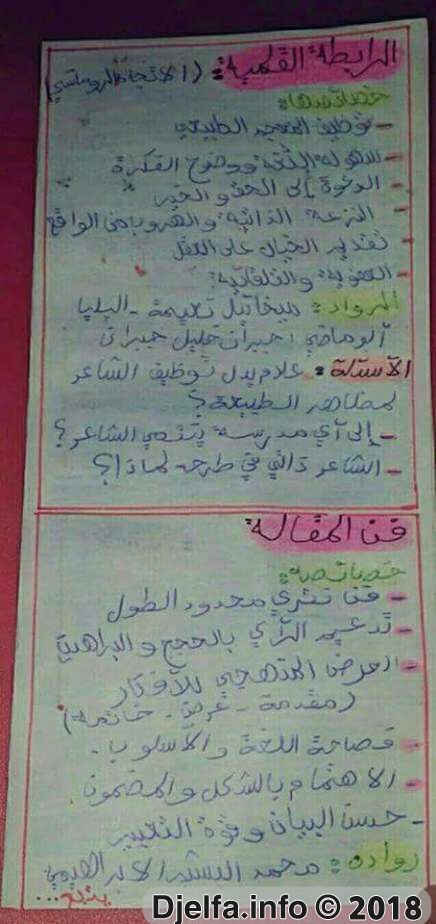 الرابطة القلمية: (الاتجاه الرومانسي)
خصائصها:
- توظيف المعجم الطبيعي
- سهولة اللغة ووضوح الفكرة
- الدعوة إلى الحق والخير
- النزعة الذاتية والهروب من الواقع
- تقديم الخيال على العقل
- العفوية والتلقائية
الرواد: ميخائيل نعيمة - إيليا
أبو ماضي، جبران خليل جبران
الأسئلة: علام يدل توظيف الشاعر
لمظاهر الطبيعة؟
- إلى أي مدرسة ينتمي الشاعر؟
- الشاعر ذاتي في طرحه لماذا؟
فن المقالة
خصائصه:
- فن نثري محدود الطول
- تدعيم الرأي بالحجج والبراهين
- العرض المنهجي للأفكار
(مقدمة - عرض - خاتمة)
- فصاحة اللغة والأسلوب.
- الاهتمام بالشكل والمضمون.
- حسن البيان وقوة التعبير
رواده: محمد البشير الابراهيمي
يتبع...
Djelfa.info © 2018